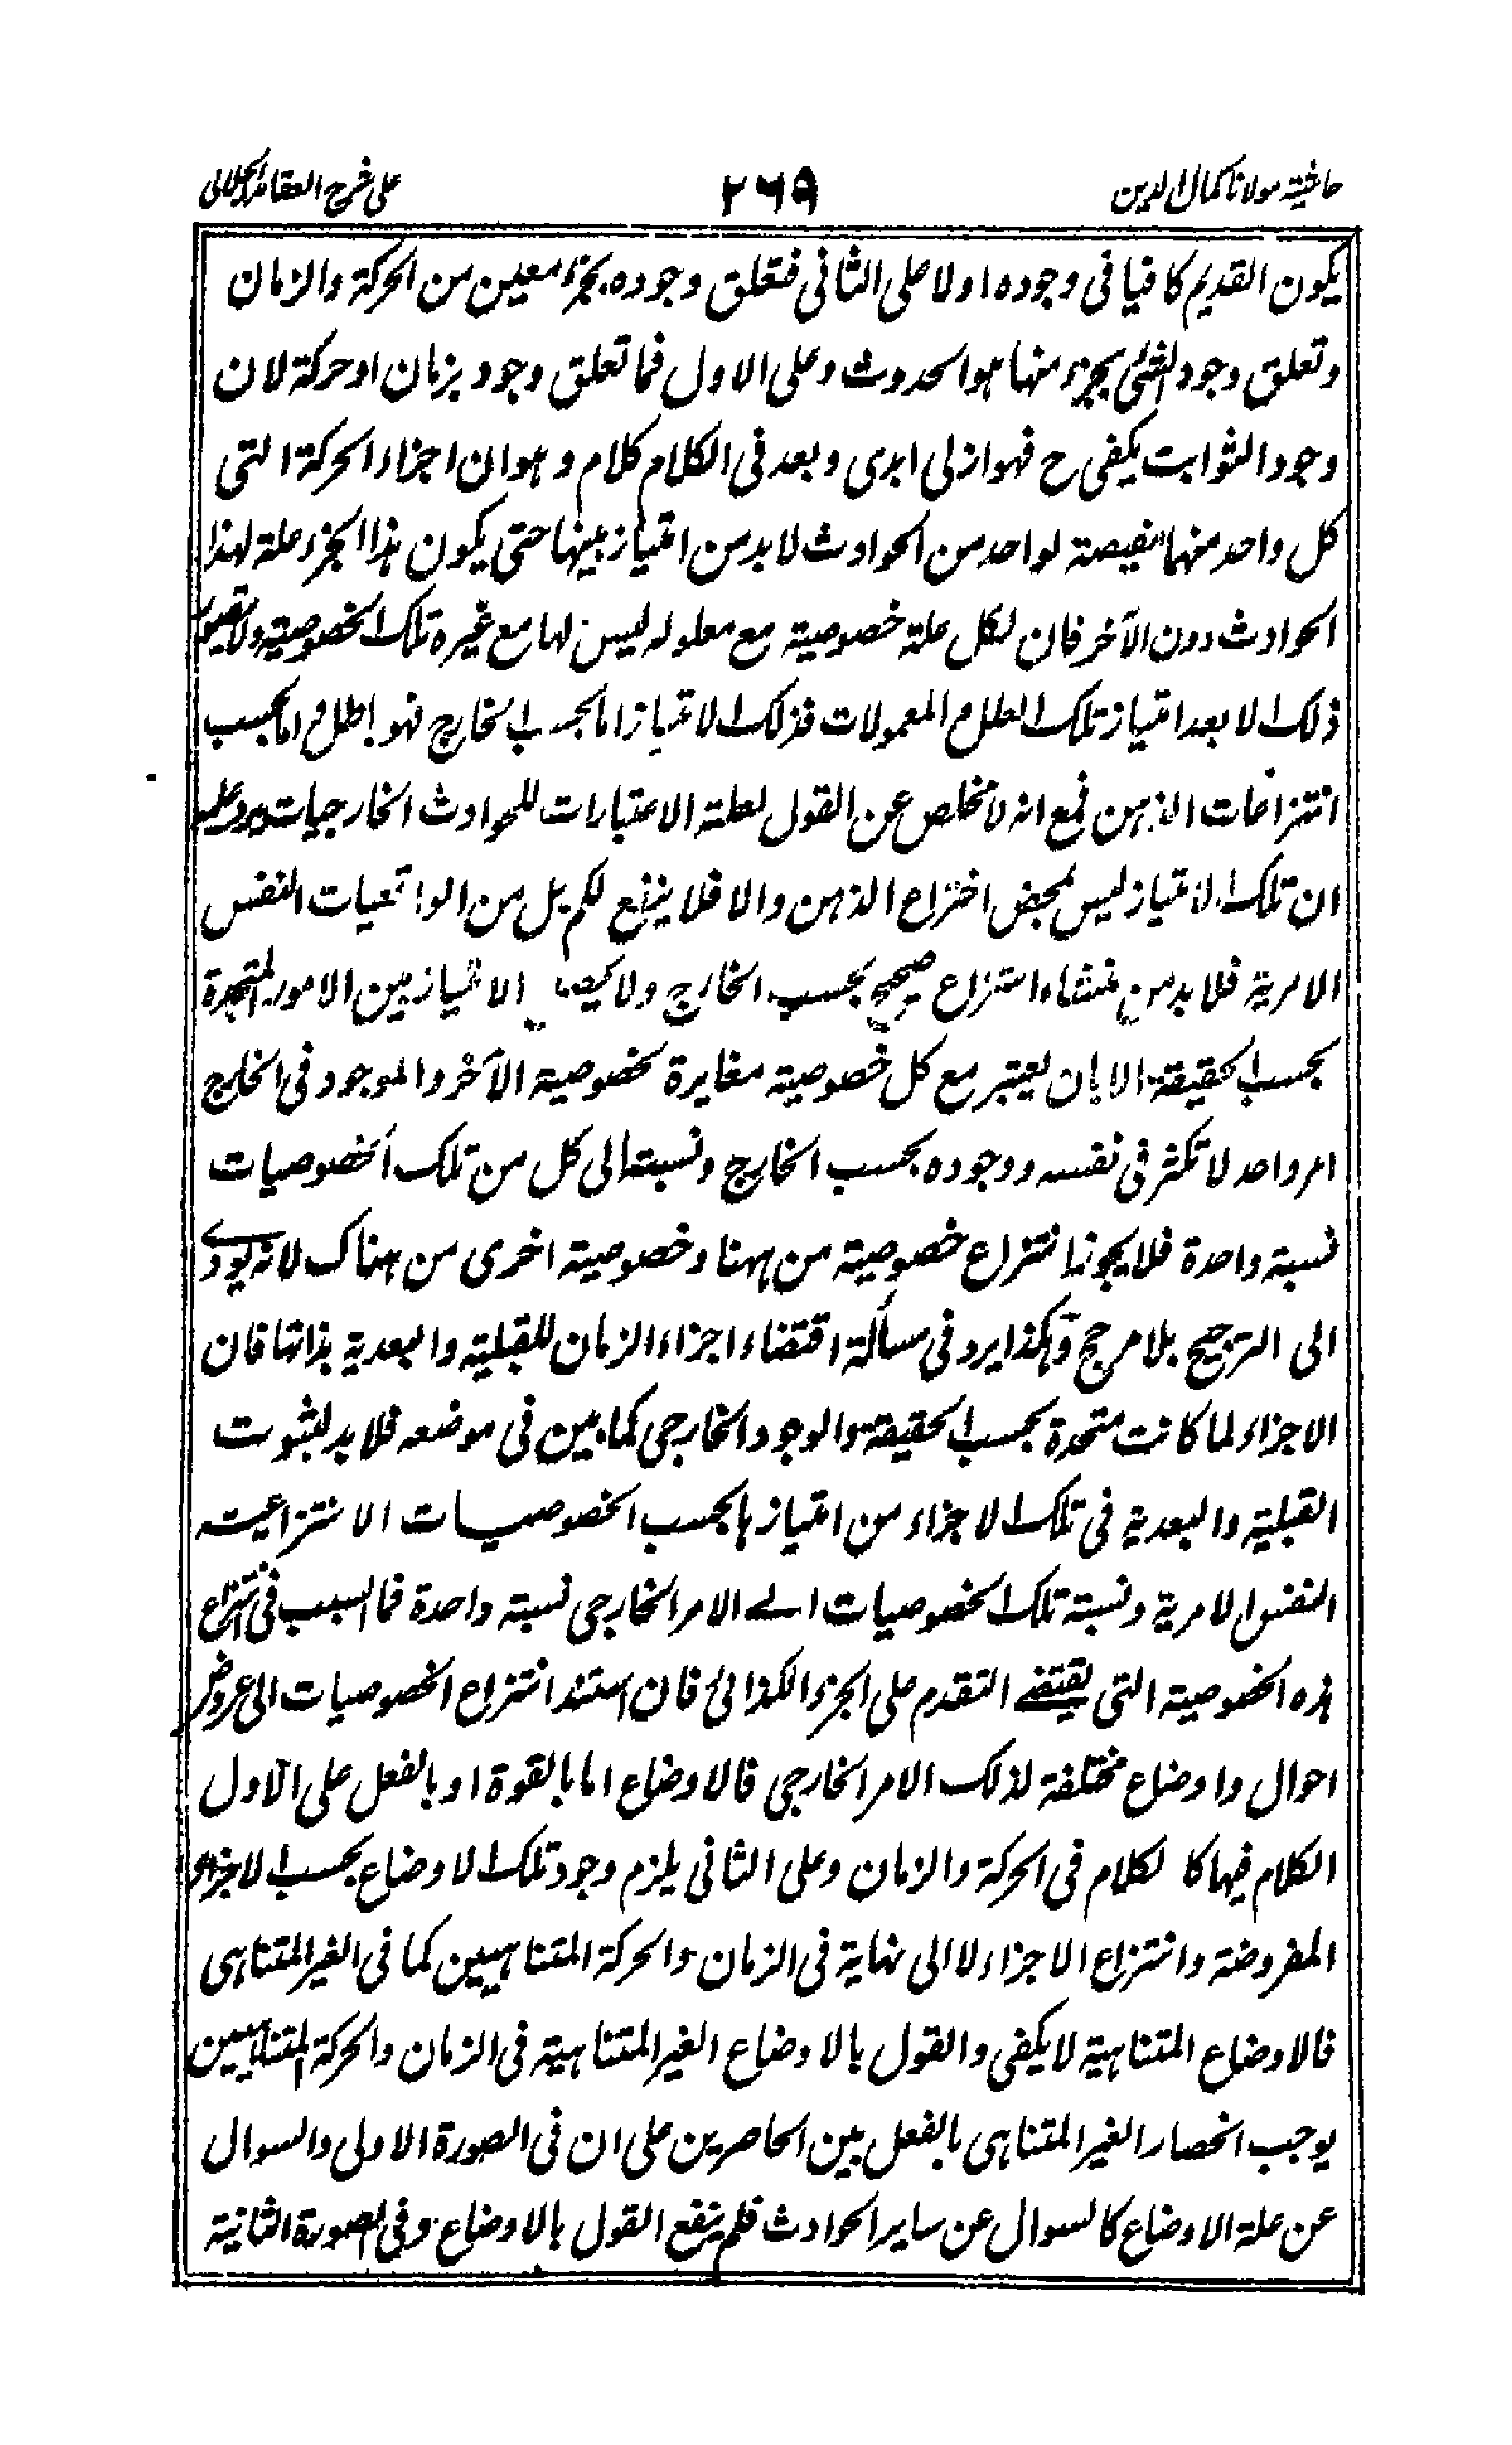 حاشیة مولانا کمال الدین
۲۶۹
علی شرح العقائد الجلالی
یکون القدیم کافیا فی وجوده اولا علی الثانی فتعلق وجوده بجزء معین من الحرکة والزمان
وتعلق وجود الشئ بجزء منها هو الحدوث وعلی الاول فما تعلق وجود بزمان او حرکة لان
وجود الثوابت یکفی ح فهو ازلی ابدی وبعد فی الکلام کلام وهو ان اجزاء الحرکة التی
کل واحد منها لواحد من الحوادث لابد من امتیاز بینها حتی یکون هذا الجزء علة لهذا
الحوادث دون الآخر فان لکل علة خصوصیة مع معلوله لیس لها مع غیره تلک الخصوصیة ولا یتصور
ذلک الا بعد امتیاز تلک العلل والمعمولات فذلک الامتیاز اما بحسب الخارج فهو باطل واما بحسب
انتزاعات الذهن فمع انه لا مخلص عن القول لعلة الاعتبارات للحوادث الخارجیات یرد علیه
ان تلک الامتیاز لیس بمحض اختراع الذهن والا فلا ینفع لکم بل من الواقعیات النفس
الامریة فلابد من منشاء انتزاع صحیح بحسب الخارج ولا الامتیاز بین الامور المتحدة
بحسب الحقیقة الا بان یعتبر مع کل خصوصیة مغایرة لخصوصیة الآخر والموجود فی الخارج
امر واحد لا تکثر فی نفسه ووجوده بحسب الخارج ونسبته الی کل من تلک الخصوصیات
نسبة واحدة فلا یجوز انتزاع خصوصیة من ههنا وخصوصیة اخری من هناک لانه یودی
الی الترجیح بلا مرجح وهکذا یرد فی مسألة اقتضاء اجزاء الزمان للقبلیة والبعدیة بذاتها فان
الاجزاء لما کانت متحدة بحسب الحقیقة والوجود الخارجی کما بین فی موضعه فلابد لثبوت
القبلیة والبعدیة فی تلک الاجزاء من امتیازها بحسب الخصوصیات الانتزاعیة
النفس الامریة ونسبة تلک الخصوصیات الی الامر الخارجی نسبة واحدة فما السبب فی انتزاع
هذه الخصوصیة التی یقتضی التقدم علی الجزء الکذائی فان استند انتزاع الخصوصیات الی عروض
احوال واوضاع مختلفة لذلک الامر الخارجی فالاوضاع اما بالقوة او بالفعل علی الاول
الکلام فیها کا لکلام فی الحرکة والزمان وعلی الثانی یلزم وجود تلک الاوضاع بحسب الاجزاء
المفروضة وانتزاع الاجزاء لا الی نهایة فی الزمان والحرکة المتناهیین کما فی الغیر المتناهی
فالاوضاع المتناهیة لا یکفی والقول بالاوضاع الغیر المتناهیة فی الزمان والحرکة المتناهیین
یوجب انحصار الغیر المتناهی بالفعل بین الحاصرین علی ان فی الصورة الاولی والسوال
عن علة الاوضاع کالسوال عن سایر الحوادث فلم ینفع القول بالاوضاع وفی الصورة الثانیة